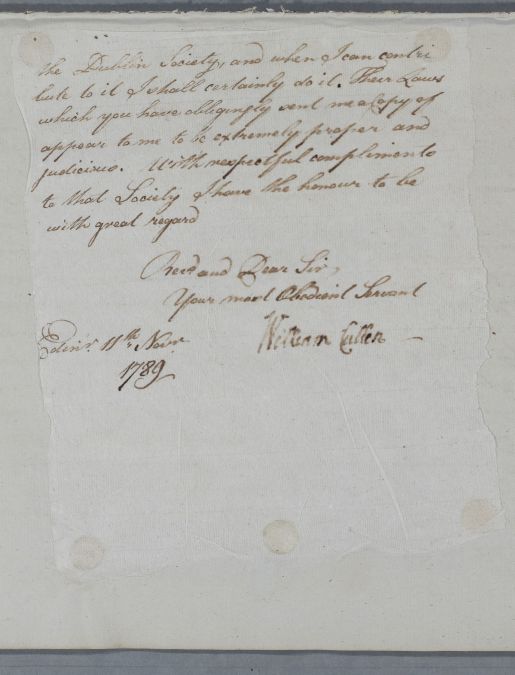 the Dublin Society, and when I can contri
bute to it I shall certainly do it. Their Laws
which you have obligingly sent me a Copy of
appear to me to be extremely proper and
judicious. With respectful compliments
to that Society I have the honour to be
with great regard
Revd and Dear Sir,
Your most Obedient Servant
William Cullen
Edinr. 11th Novr
1789